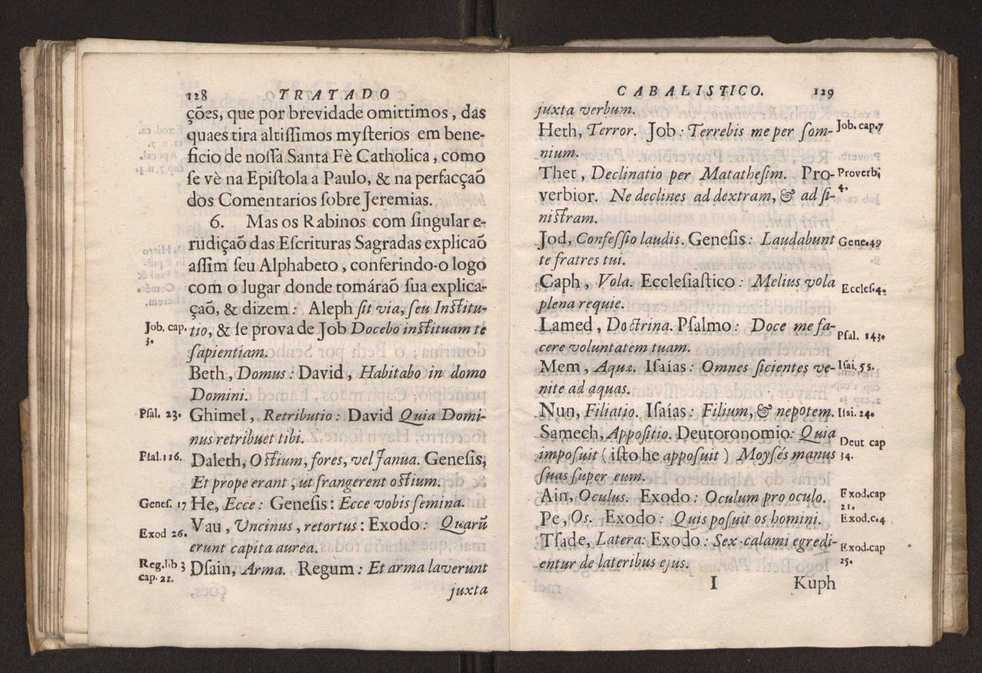 128 TRATADO
ções, que por brevidade omittimos, das
quaes tira altissimos mysterios em bene-
ficio de nossa Santa Fè Catholica, como
se vè na Epistola a Paulo, & na perfacçaõ
dos Comentarios sobre Jeremias.
6. Mas os Rabinos com singular e-
rudiçaõ das Escrituras Sagradas explicaõ
assim seu Alphabeto, conferindo-o logo
com o lugar donde tomáraõ sua explica-
çaõ, & dizem: Aleph sit via, seu Institu-
Job. cap. 3. tio, & se prova de Job Docebo instituam te
sapientiam.
Beth, Domus: David, Habitabo in domo
Domini.
Psal. 23. Ghimel, Retributio: David Quia Domi-
nus retribuet tibi.
Psal. 116. Daleth, Ostium, fores, vel Janua. Genesis,
Et prope erant, ut frangerent ostium.
Genes. 17 He, Ecce: Genesis: Ecce vobis semina.
Exod 26. Vau, Uncinus, retortus: Exodo: Quarũ
erunt capita aurea.
Reg. lib 3 cap. 22. Dsain, Arma. Regum: Et arma laverunt
juxta
CABALISTICO. 129
juxta verbum.
Heth, Terror. Job: Terrebis me per som- Job. cap. 7
nium.
Thet, Declinatio per Matathesim. Pro- Proverb; 4.
verbior. Ne declines ad dextram, & ad si-
nistram.
Jod, Confessio laudis. Genesis: Laudabunt Gene. 49
te fratres tui.
Caph, Vola. Ecclesiastico: Melius vola Eccles. 4.
plena requie.
Lamed, Doctrina. Psalmo: Doce me fa- Psal. 143.
cere voluntatem tuam.
Mem, Aqua. Isaias: Omnes sicientes ve- Isai, 55.
nite ad aquas.
Nun, Filiatio. Isaías: Filium, & nepotem. Isai. 24.
Samech, Appositio. Deutoronomio: Quia
imposuit (isto he apposuit) Moysés manus Deut cap 34.
suas super eum.
Ain, Oculus. Exodo: Oculum pro oculo. Exod. cap 21.
Pe, Os. Exodo: Quis posuit os homini. Exod. c. 4
Tsade, Latera: Exodo: Sex calami egredi- Exod. cap 25.
entur de lateribus ejus.
I Kuph